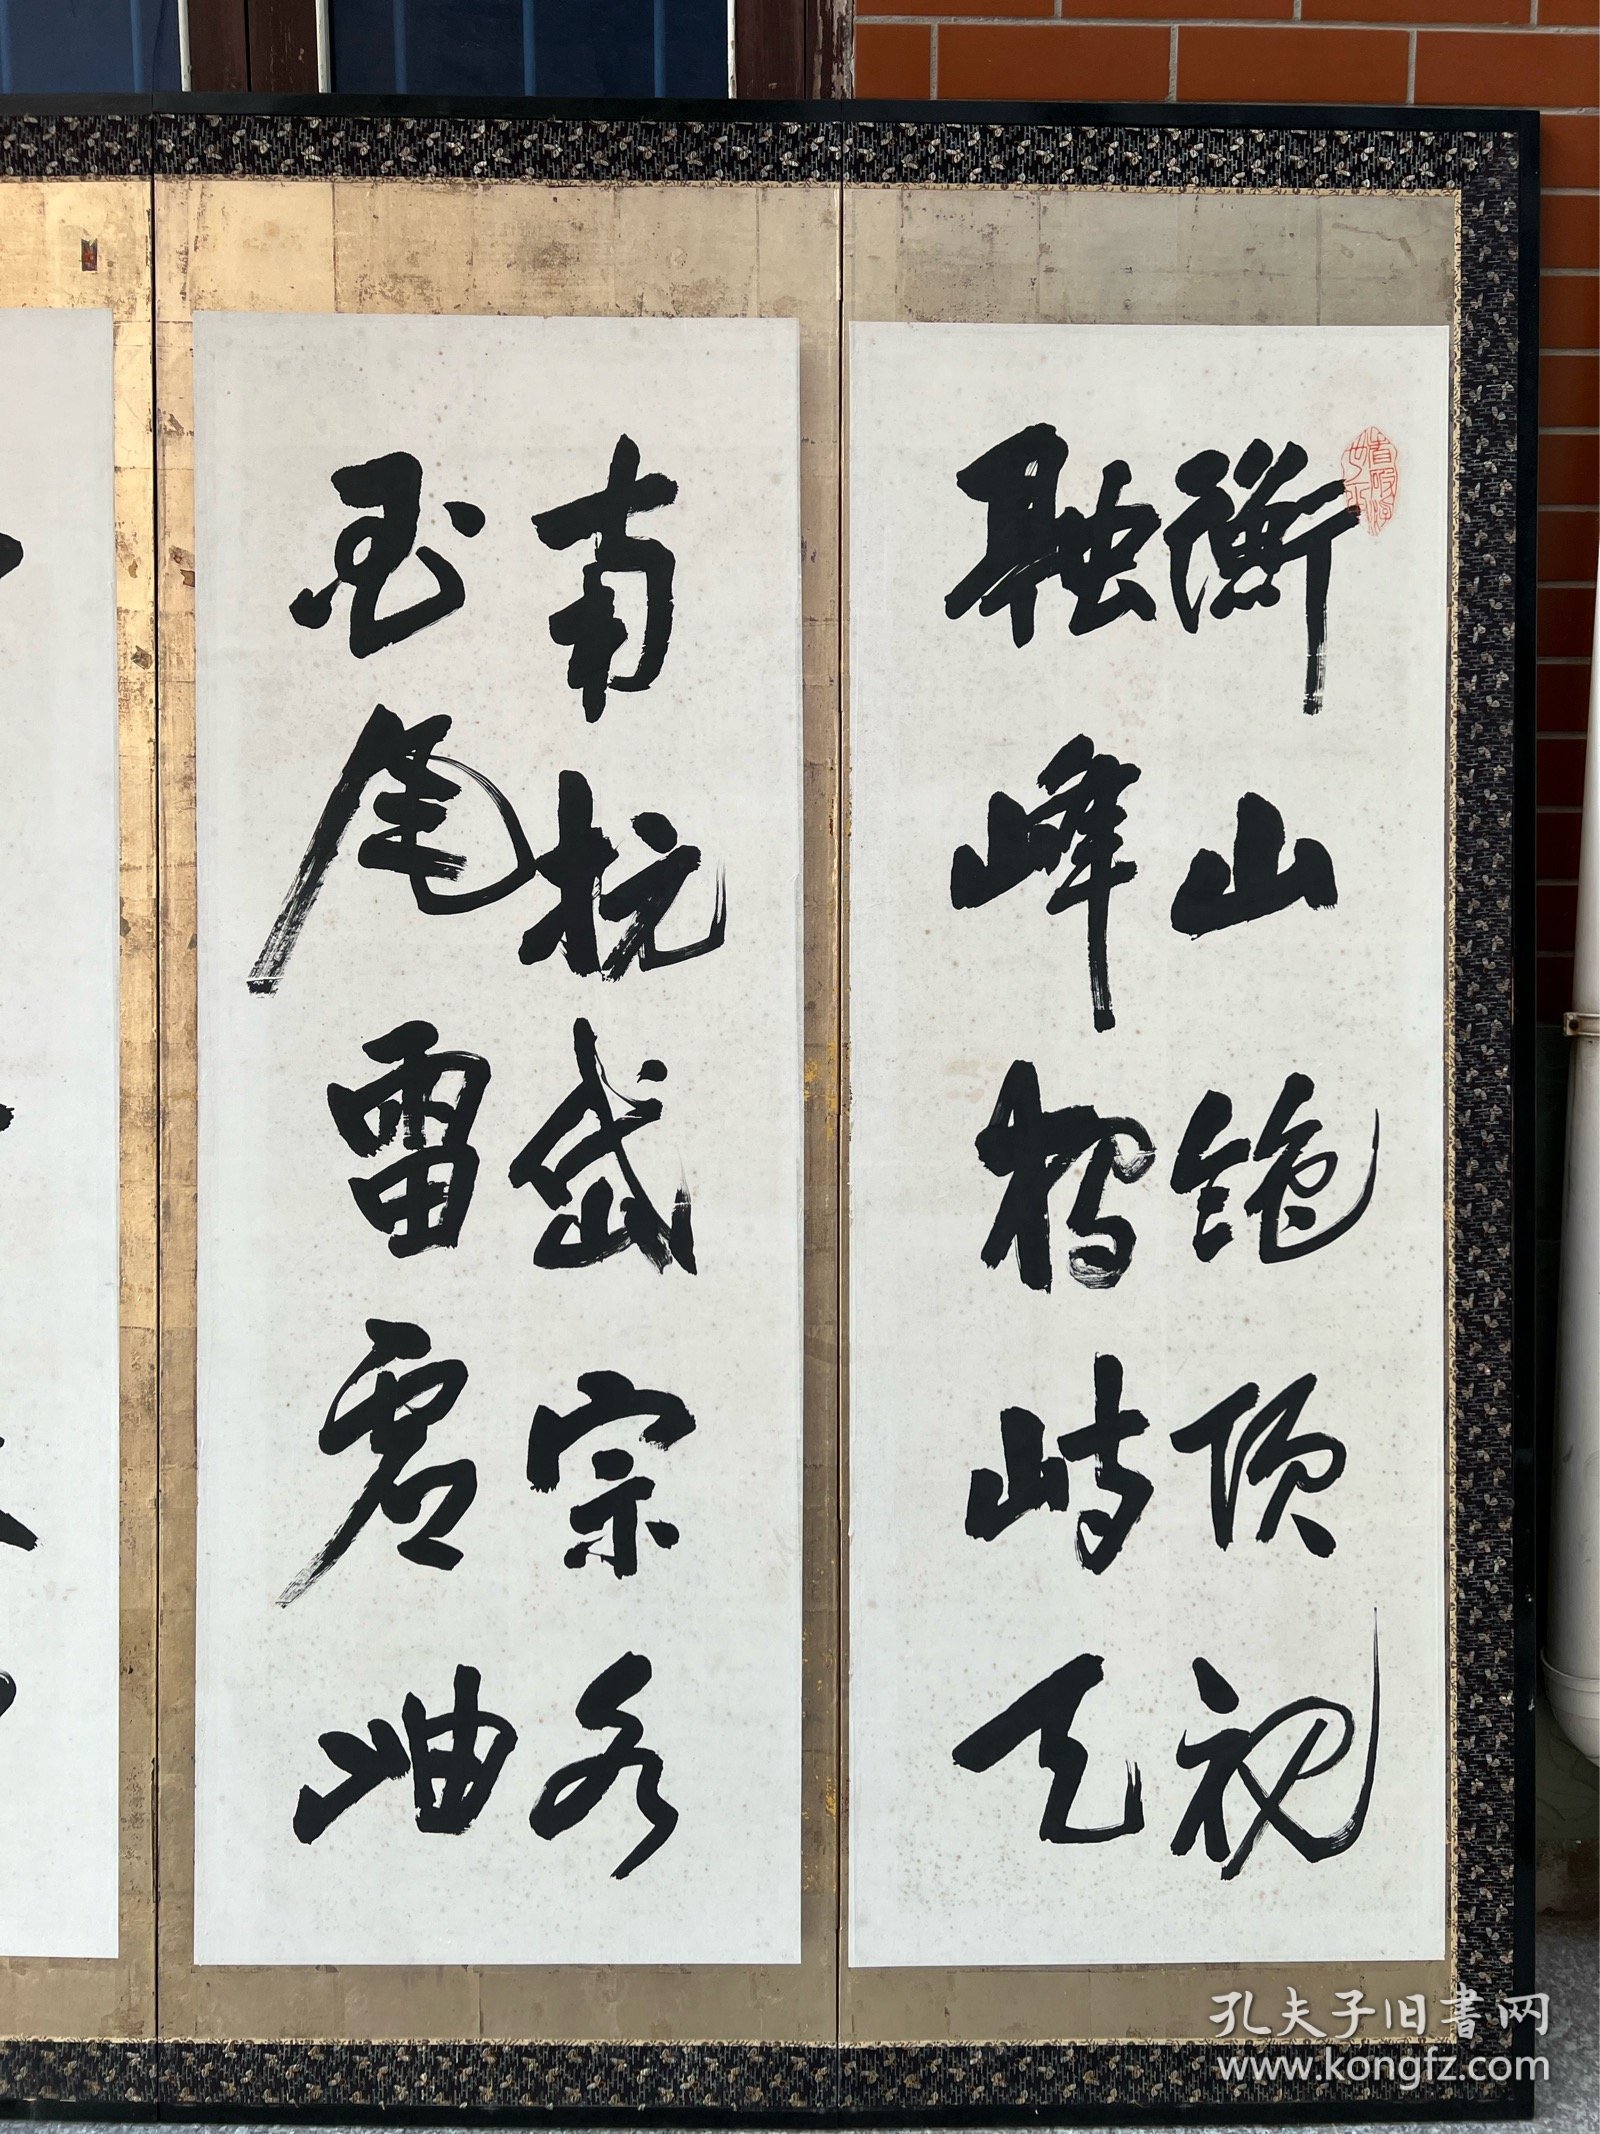 衡山絶頂祝
融峰特峙天
南抗岱宗
尾雷虚岫
孔夫子旧书网
www.kongfz.com